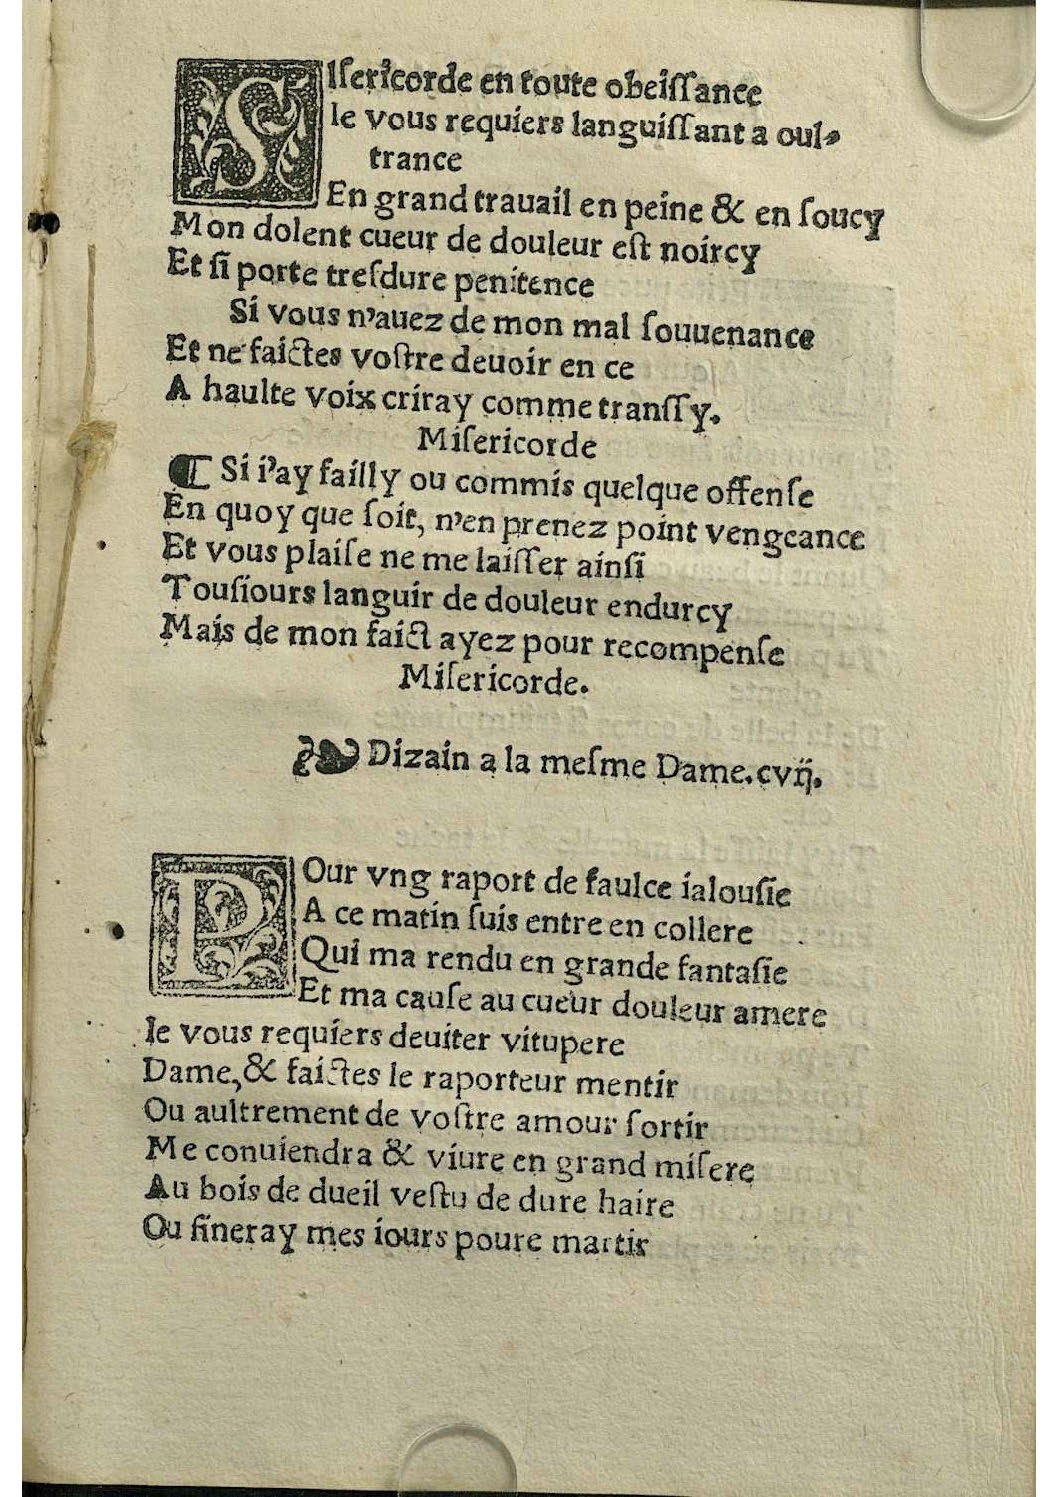 SIſericorde en toute obeiſſance
Ie vous requiers languiſſant a oul⸗
trance
En grand trauail en peine & en ſoucy
Mon dolent cueur de douleur eſt noircy
Et ſi porte treſdure penitence
Si vous n'auez de mon mal ſouuenance
Et ne faictes voſtre deuoir en ce
A haulte voix criray comme tranſſy.
Miſericorde
¶ Si i'ay failly ou commis quelque offenſe
En quoy que ſoit, n'en prenez point vengeance
Et vous plaiſe ne me laiſſer ainſi
Touſiours languir de douleur endurcy
Mais de mon faict ayez pour recompenſe
Miſericorde.
❧ Dizain a la meſme Dame.cvij.
POur vng raport de faulce ialouſie
A ce matin ſuis entre en collere
Qui ma rendu en grande fantaſie
Et ma cauſe au cueur douleur amere
Ie vous requiers deuiter vitupere
Dame, & faictes le raporteur mentir
Ou aultrement de voſtre amour ſortir
Me conuiendra & viure en grand miſere
Au bois de dueil veſtu de dure haire
Ou fineray mes iours poure martir